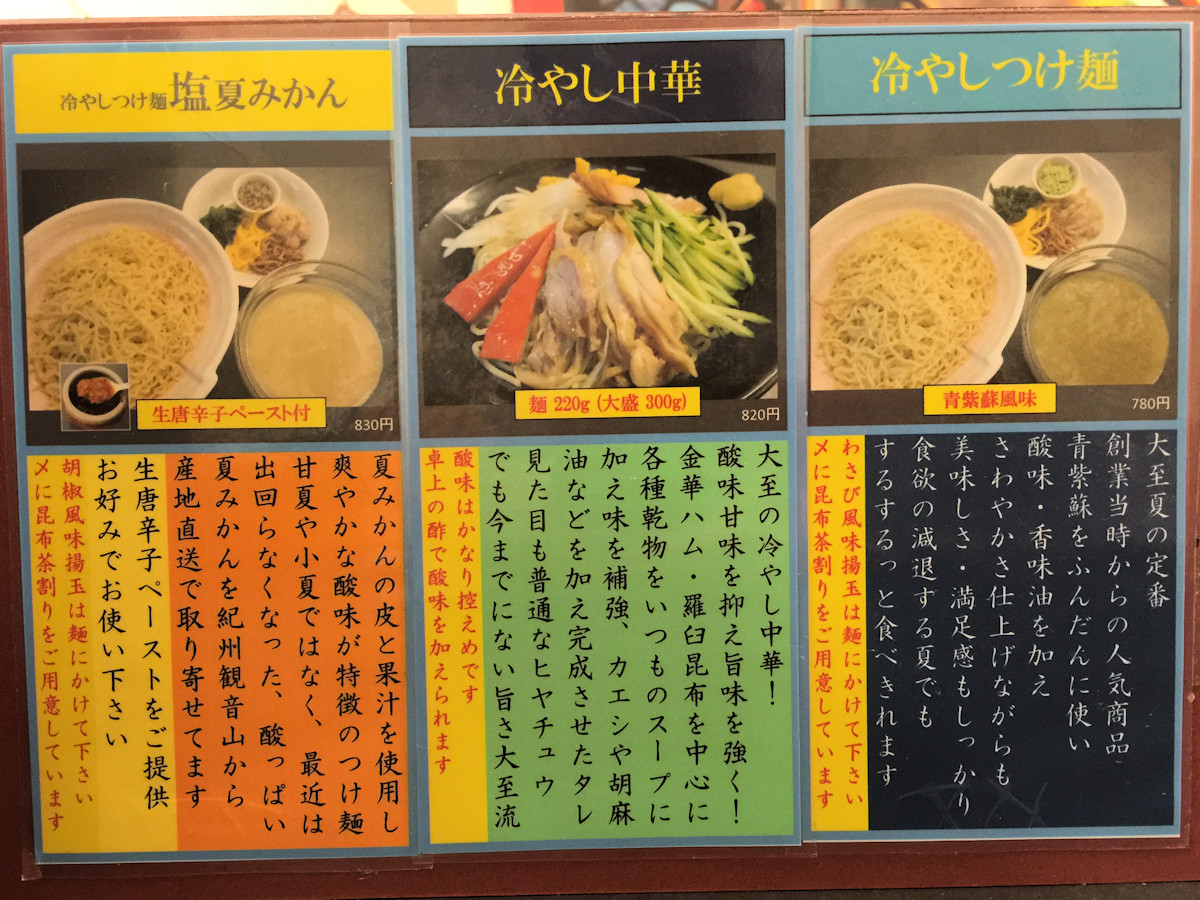 冷やしつけ麺塩夏みかん
生唐辛子ペースト付
830円
夏みかんの皮と果汁を使用し
爽やかな酸味が特徴のつけ麺
甘夏や小夏ではなく、最近は
出回らなくなった、酸っぱい
夏みかんを紀州観音山から
産地直送で取り寄せてます
生唐辛子ペーストをご提供
お好みでお使い下さい
胡椒風味揚玉は麺にかけて下さい
〆に昆布茶割りをご用意しています
冷やし中華
麺 220g (大盛 300g)
820円
大至の冷やし中華！
酸味甘味を抑え旨味を強く！
金華ハム・羅臼昆布を中心に
各種乾物をいつものスープに
加え味を補強、カエシや胡麻
油などを加え完成させたタレ
見た目も普通なヒヤチュウ
でも今までにない旨さ大至流
酸味はかなり控えめです
卓上の酢で酸味を加えられます
冷やしつけ麺
青紫蘇風味
780円
大至夏の定番
創業当時からの人気商品
青紫蘇をふんだんに使い
酸味・香味油を加え
さわやかさ仕上げながらも
美味しさ・満足感もしっかり
食欲の減退する夏でも
するするっと食べきれます
わさび風味揚玉は麺にかけて下さい
〆に昆布茶割りをご用意しています